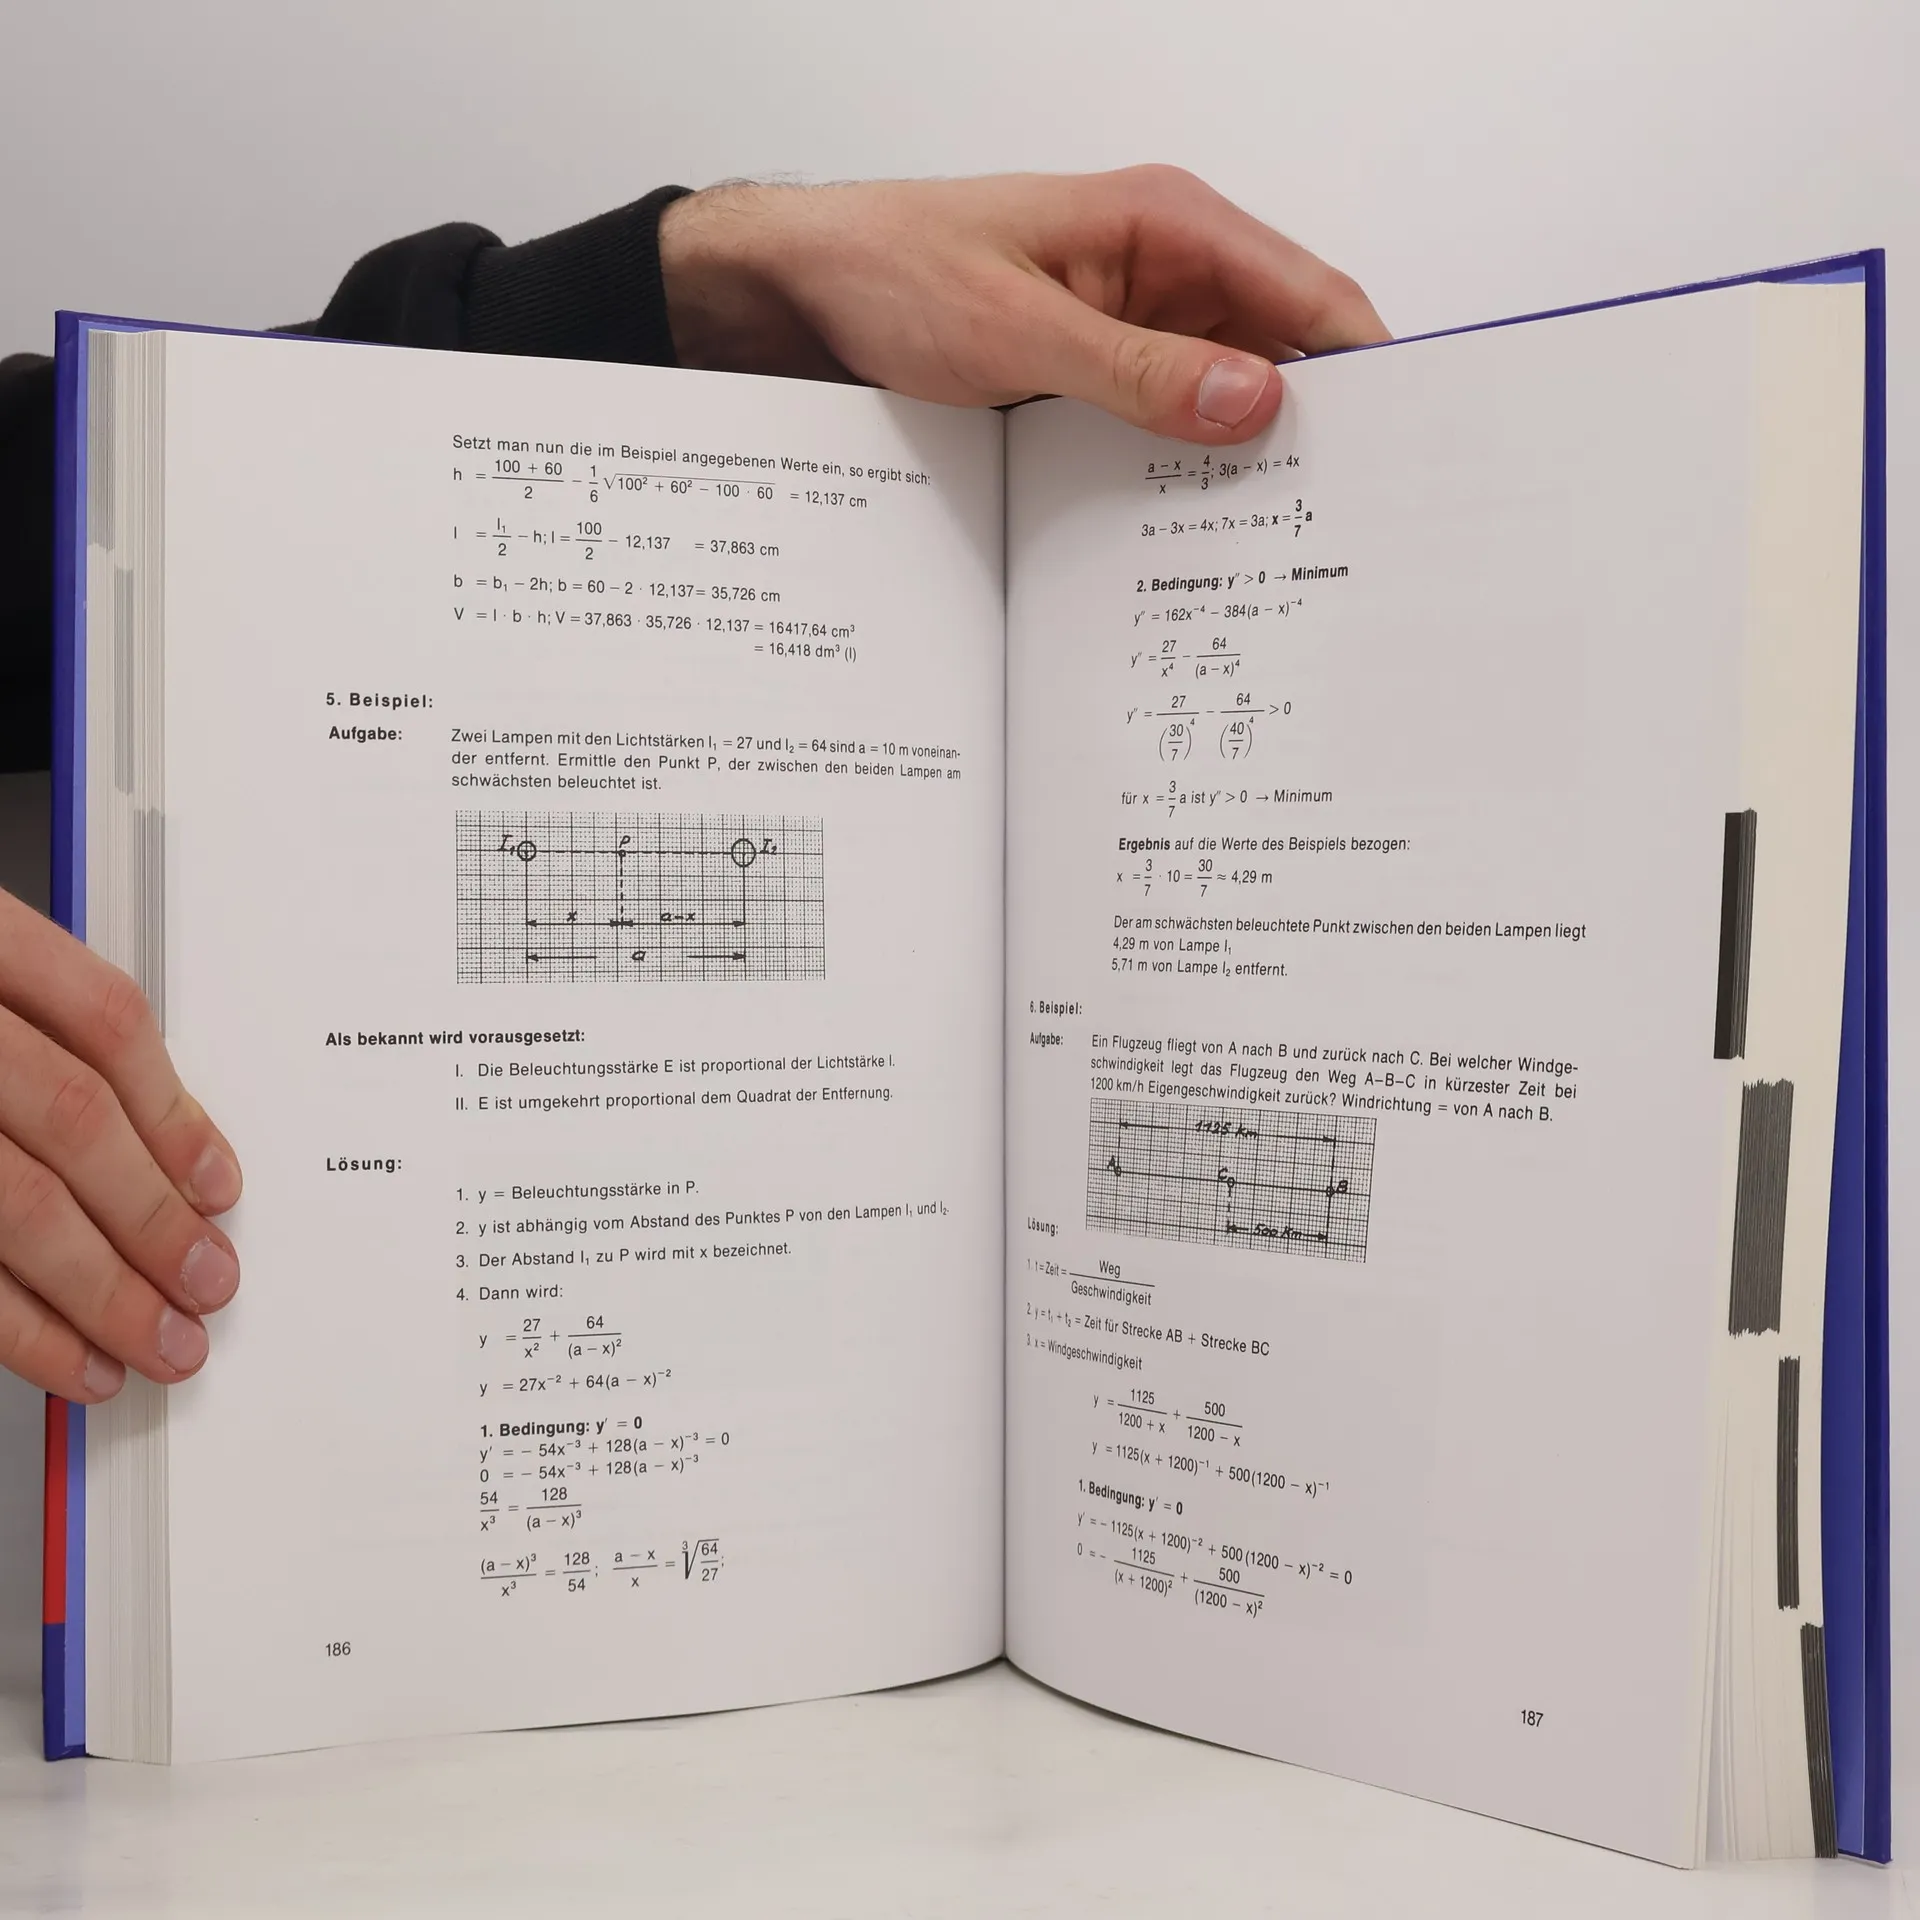 Setzt man nun die im Beispiel angegebenen Werte ein, so ergibt sich:
h = (100 + 60)/2 − 1/6 √(100² + 60² − 100 · 60) = 12,137 cm
l = l₁/2 − h; l = 100/2 − 12,137 = 37,863 cm
b = b₁ − 2h; b = 60 − 2 · 12,137 = 35,726 cm
V = l · b · h; V = 37,863 · 35,726 · 12,137 = 16417,64 cm³
= 16,418 dm³ (l)
5. Beispiel:
Aufgabe: Zwei Lampen mit den Lichtstärken I₁ = 27 und I₂ = 64 sind a = 10 m voneinan-
der entfernt. Ermittle den Punkt P, der zwischen den beiden Lampen am
schwächsten beleuchtet ist.
I₁ P I₂
x a-x
a
Als bekannt wird vorausgesetzt:
I. Die Beleuchtungsstärke E ist proportional der Lichtstärke I.
II. E ist umgekehrt proportional dem Quadrat der Entfernung.
Lösung:
1. y = Beleuchtungsstärke in P.
2. y ist abhängig vom Abstand des Punktes P von den Lampen I₁ und I₂.
3. Der Abstand I₁ zu P wird mit x bezeichnet.
4. Dann wird:
y = 27/x² + 64/(a − x)²
y = 27x⁻² + 64(a − x)⁻²
1. Bedingung: y' = 0
y' = − 54x⁻³ + 128(a − x)⁻³ = 0
0 = − 54x⁻³ + 128(a − x)⁻³
54/x³ = 128/(a − x)³
(a − x)³/x³ = 128/54; (a − x)/x = ³√(64/27);
186
(a − x)/x = 4/3; 3(a − x) = 4x
3a − 3x = 4x; 7x = 3a; x = 3/7 a
2. Bedingung: y'' > 0 → Minimum
y'' = 162x⁻⁴ − 384(a − x)⁻⁴
y'' = 27/x⁴ − 64/(a − x)⁴
y'' = 27/(30/7)⁴ − 64/(40/7)⁴ > 0
für x = 3/7 a ist y'' > 0 → Minimum
Ergebnis auf die Werte des Beispiels bezogen:
x = 3/7 · 10 = 30/7 ≈ 4,29 m
Der am schwächsten beleuchtete Punkt zwischen den beiden Lampen liegt
4,29 m von Lampe I₁
5,71 m von Lampe I₂ entfernt.
6. Beispiel:
Aufgabe: Ein Flugzeug fliegt von A nach B und zurück nach C. Bei welcher Windge-
schwindigkeit legt das Flugzeug den Weg A–B–C in kürzester Zeit bei
1200 km/h Eigengeschwindigkeit zurück? Windrichtung = von A nach B.
1125 km
A C B
500 km
Lösung:
1. t = Zeit = Weg/Geschwindigkeit
2. y = t₁ + t₂ = Zeit für Strecke AB + Strecke BC
3. x = Windgeschwindigkeit
y = 1125/(1200 + x) + 500/(1200 − x)
y = 1125(x + 1200)⁻¹ + 500(1200 − x)⁻¹
1. Bedingung: y' = 0
y' = − 1125(x + 1200)⁻² + 500(1200 − x)⁻² = 0
0 = − 1125/(x + 1200)² + 500/(1200 − x)²
187